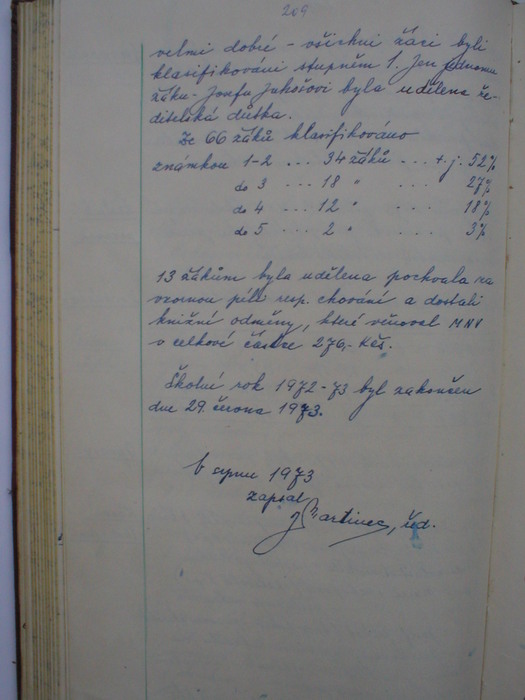 209
velmi dobré - všichni žáci byli
klasifikováni stupněm 1. Jen jednomu
žáku - Josefu Juhošovi byla udělena ře-
ditelská důtka.
Ze 66 žáků klasifikováno
známkou 1-2 ... 34 žáků ... t. j. 52%
do 3 ... 18 " ... 27%
do 4 ... 12 " ... 18%
do 5 ... 2 " ... 3%
13 žákům byla udělena pochvala za
vzornou péči resp. chování a dostali
knižní odměny, které věnoval MNV
v celkové částce 276,- Kčs.
Školní rok 1972-73 byl zakončen
dne 29. června 1973.
V srpnu 1973
zapsal
J. Bartinec, řed.